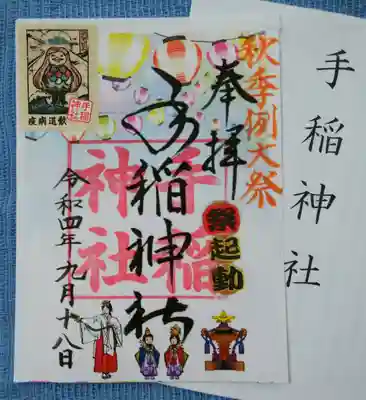 秋季例大祭
奉拝
手稲神社
手稲神社
祭起動
令和四年九月十八日
疫病退散
手稲神社
手稲神社